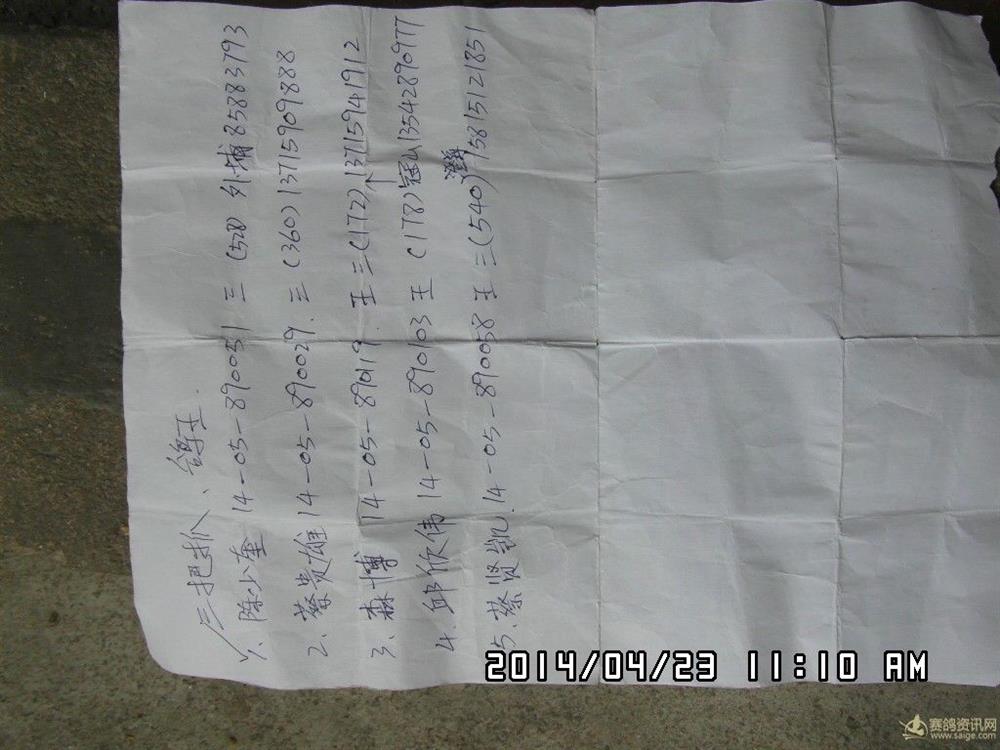 三把抓、鸽王.
1、陈少奎 14-05-890051 三 (528) 外埔 85883793
2、蔡贵雄 14-05-890029. 三 (360) 13715909888
3、森博 14-05-890119. 王三 (172) 13715941912
4、邱欣伟 14-05-890103 王 (178) 冠山 13542890977
5、蔡贤凯. 14-05-890058 王三 (540) 15815121851
2014/04/23 11:10 AM
赛鸽资讯网
www.saige.com